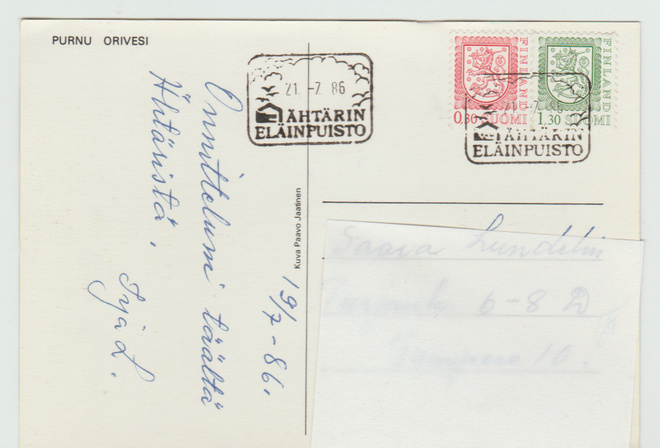 PURNU ORIVESI
21.-7. 86
ÄHTÄRIN
ELÄINPUISTO
FINLAND
0,30 SUOMI
FINLAND
1,30 SUOMI
21.-7. 86
ÄHTÄRIN
ELÄINPUISTO
19/7-86.
Onnittelumi täältä
Ähtäristä.
Kuva Paavo Jaatinen
6-8 D